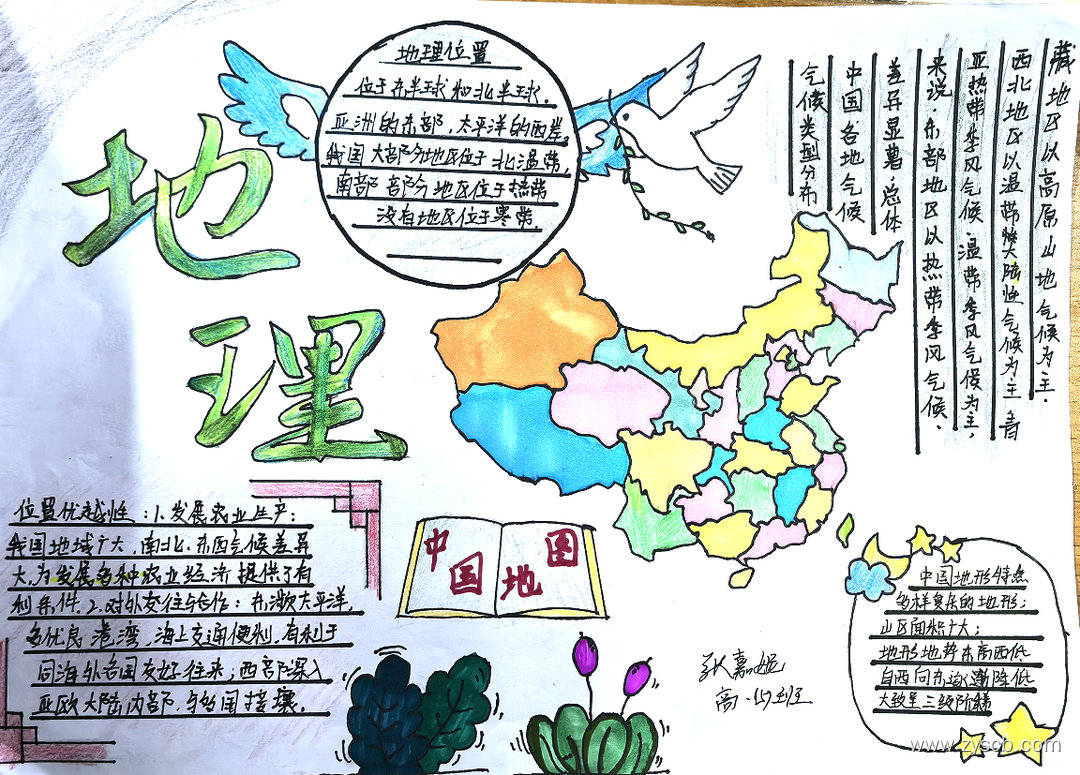 地理
地理位置
位于东半球和北半球，
亚洲的东部，太平洋的西岸。
我国大部分地区位于北温带，
南部部分地区位于热带
没有地区位于寒带。
气候类型分布
中国各地气候
差异显著 总体
来说东部地区以热带季风气候、
亚热带季风气候、温带季风气候为主，
西北地区以温带大陆性气候为主 青
藏地区以高原山地气候为主.
位置优越性：1.发展农业生产：
我国地域广大，南北、东西气候差异
大，为发展多种农业经济提供了有
利条件 2.对外交往与合作：东濒太平洋，
多优良港湾，海上交通便利，有利于
同海外各国友好往来；西部深入
亚欧大陆内部，与多国接壤.
中国
地图
中国地形特点
多样复杂的地形；
山区面积广大；
地形地势东高西低
自西向东逐渐降低
大致呈三级阶梯
嘉妮
高一
班
www.zyscb.com